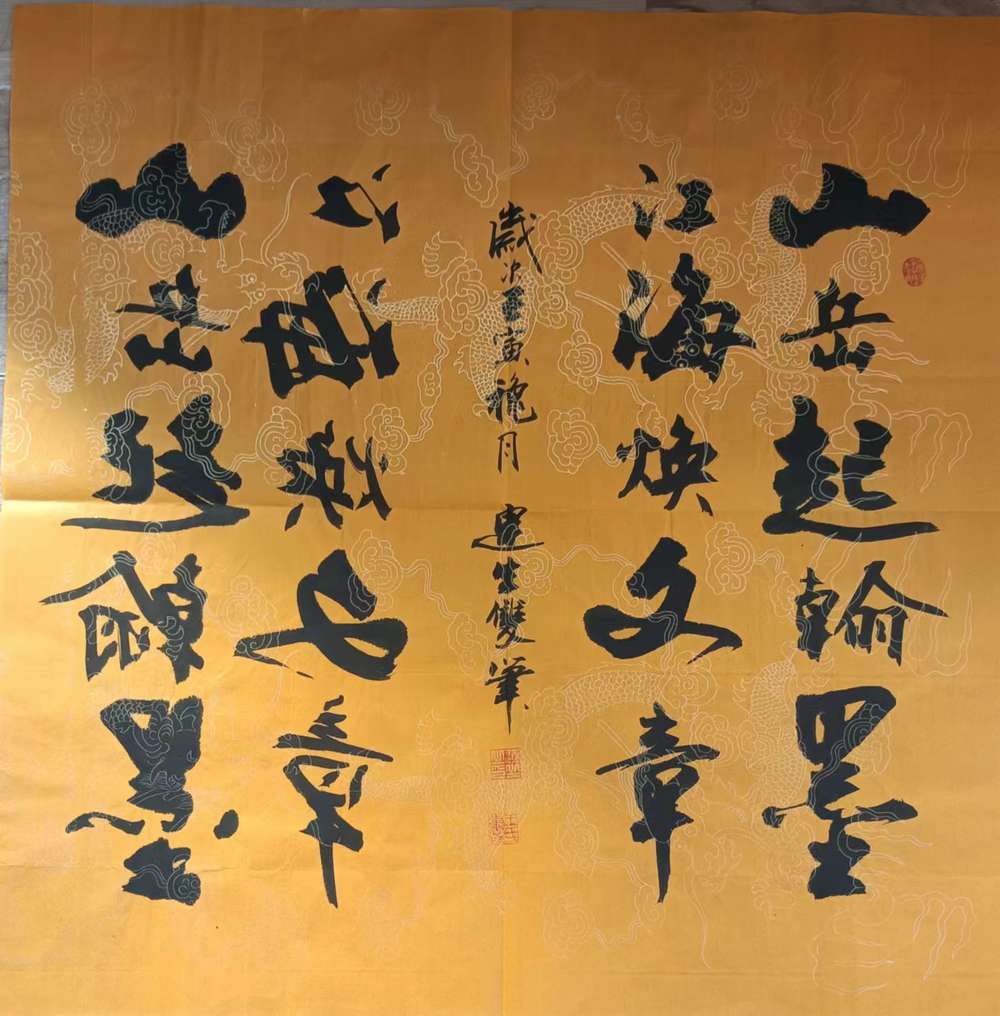 山岳起翰墨
江海焕文章
歲次壬寅穐月 生雙筆
江海焕文章
山岳起翰墨